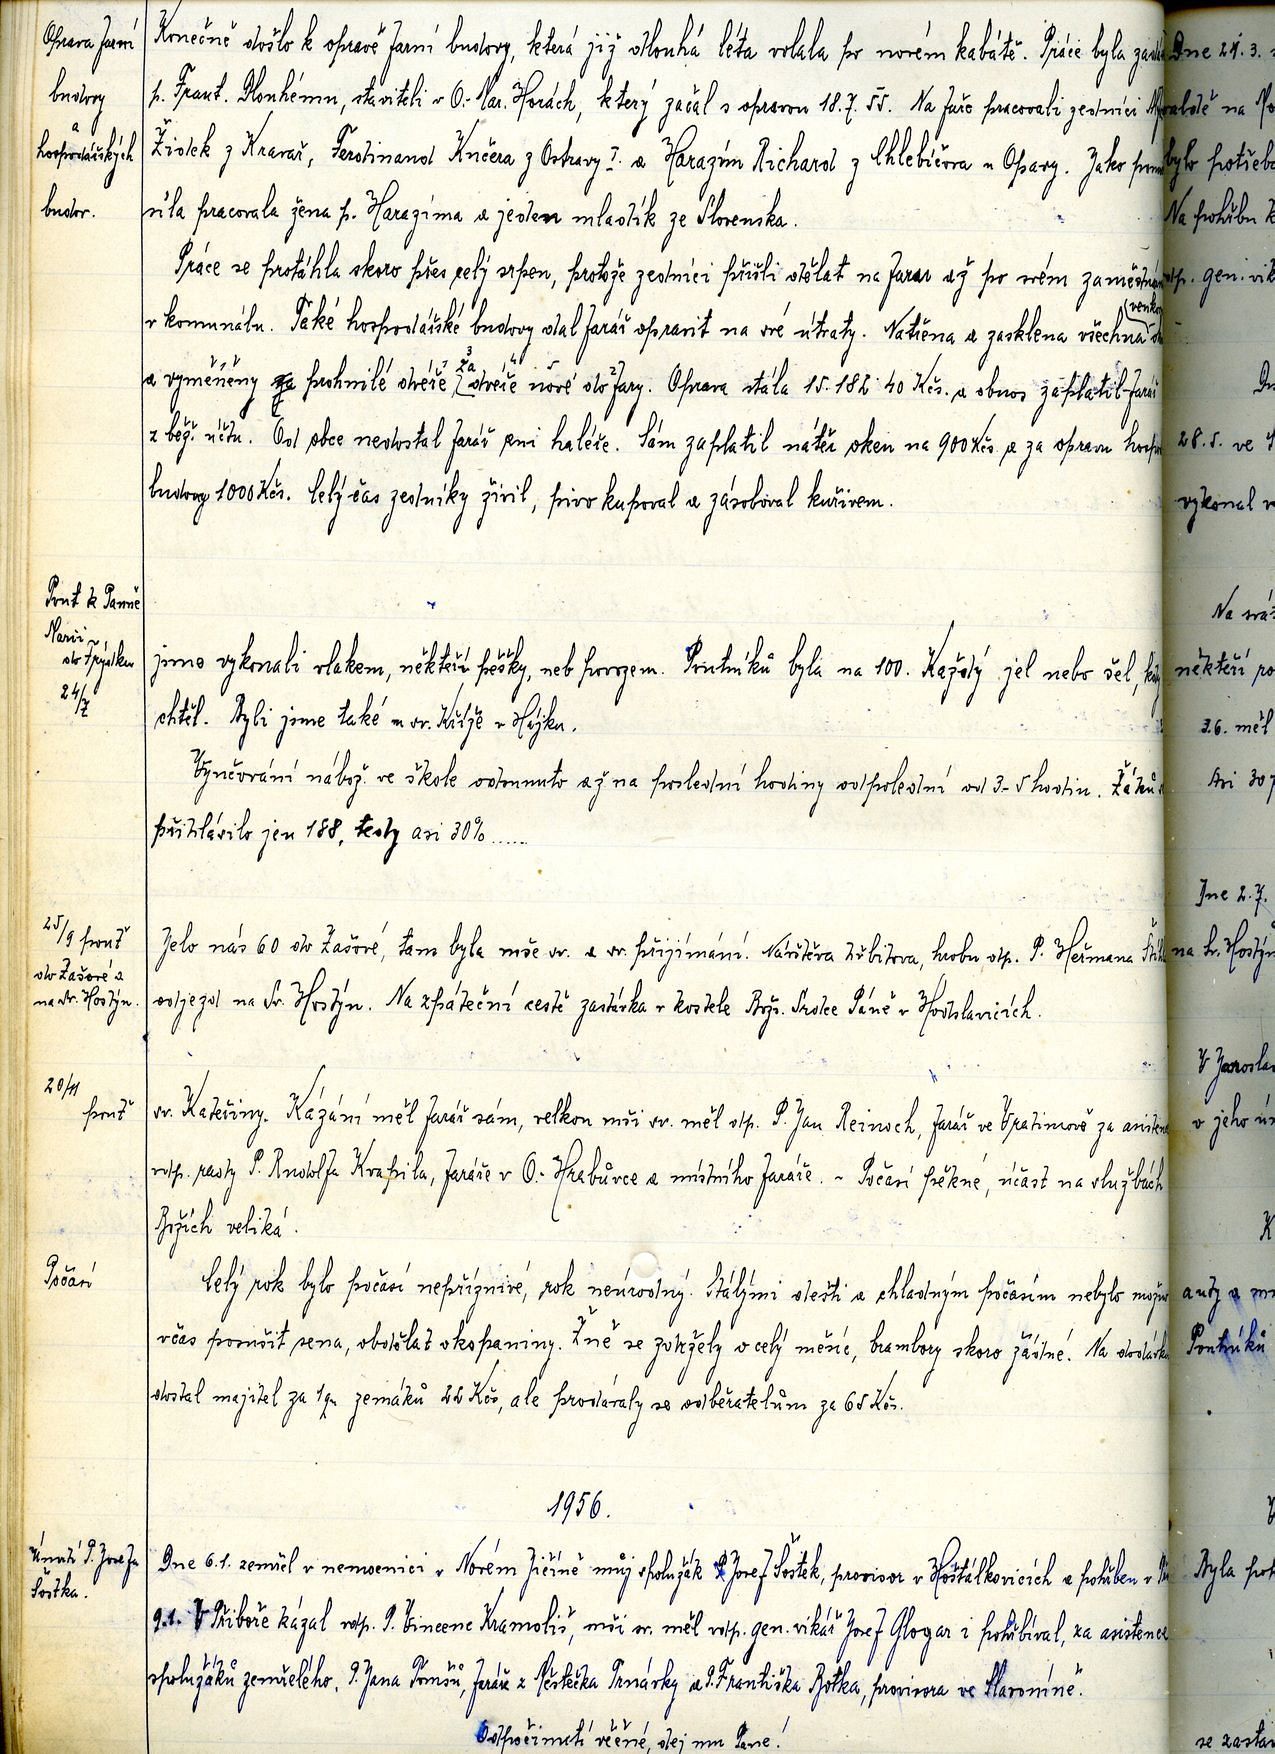 Oprava farní
budovy
a
hospodářských
budov.
Konečně došlo k opravě farní budovy, která již dlouhá léta volala po novém kabátě. Práce byla
p. Frant. Dlouhému, staviteli v O.-Mar. Horách, který začal s opravou 18.7.55. Na faře pracovali zedníci
Židek z Kravař, Ferdinand Kučera z Ostravy I. a Harazim Richard z Chlebičova u Opavy. Jako
síla pracovala žena p. Harazima a jeden mladík ze Slovenska.
Práce se protáhla skoro přes celý srpen, protože zedníci přišli dělat na faru až po svém
v komunálu. Také hospodářské budovy dal farář opravit na své útraty. Natřena a zasklena všechna
a vyměněny prohnilé dveře za dveře nové do fary. Oprava stála 15.182.40 Kčs. a obnos zaplatil farář
z běž. účtu. Od obce nedostal farář ani haléře. Sám zaplatil nátěr oken na 900 Kčs a za opravu
budovy 1000 Kčs. Celý čas zedníky živil, pivo kupoval a zásoboval kuřivem.
Pout k Panně
Marii
do Frýdku
24/7
jsme vykonali vlakem, někteří pěšky, neb povozem. Poutníků bylo na 100. Každý jel nebo šel,
chtěl. Byli jsme také u sv. Kříže v Hájku.
Vyučování nábož. ve škole odsunuto až na poslední hodiny odpolední od 3-5 hodin. Žáků
přihlásilo jen 188, tedy asi 30% .....
25/9 pouť
do Zašové a
na Sv. Hostýn.
Jelo nás 60 do Zašové, tam byla mše sv. a sv. přijímání. Návštěva hřbitova, hrobu vdp. P. Heřmana
odjezd na Sv. Hostýn. Na zpáteční cestě zastávka v kostele Božs. Srdce Páně v Hodslavicích.
20/11
pouť
sv. Kateřiny. Kázání měl farář sám, velkou mši sv. měl vdp. P. Jan Reinoch, farář ve Vratimově za
vdp. rady P. Rudolfa Kvapila, faráře v O.-Hrabůvce a místního faráře. - Počasí pěkné, účast na službách
Božích veliká.
Počasí
Celý rok bylo počasí nepříznivé, rok neúrodný. Stálými dešti a chladným počasím nebylo
včas posušit sena, obdělat okopaniny. Žně se zdržely o celý měsíc, brambory skoro žádné. Na
dostal majitel za 1q zemáků 22 Kčs, ale prodávaly se odběratelům za 65 Kčs.
1956.
Úmrtí P. Josefa
Šostka.
Dne 6.1. zemřel v nemocnici v Novém Jičíně můj spolužák P. Josef Šostek, provisor v Hošťálkovicích a pohřben v
9.1. V Příboře kázal vdp. P. Vincenc Kramoliš, mši sv. měl vdp. gen. vikář Josef Glogar i pohřbíval, za asistence
spolužáků zemřelého, P. Jana Tomšů, faráře z Městečka Trnávky a P. Františka Botka, provisora ve Slavoníně.
Odpočinutí věčné, dej mu Pane!
Dne 21. 3.
bylo potřeb
Na pohřbu
gen. vik
28.5. ve
vykonal
někteří
3.6. měl
Asi 30
Dne 2.7.
na Sv. Hostýn
V Jaroslav
v jeho
Poutníků
Byla
se zasta